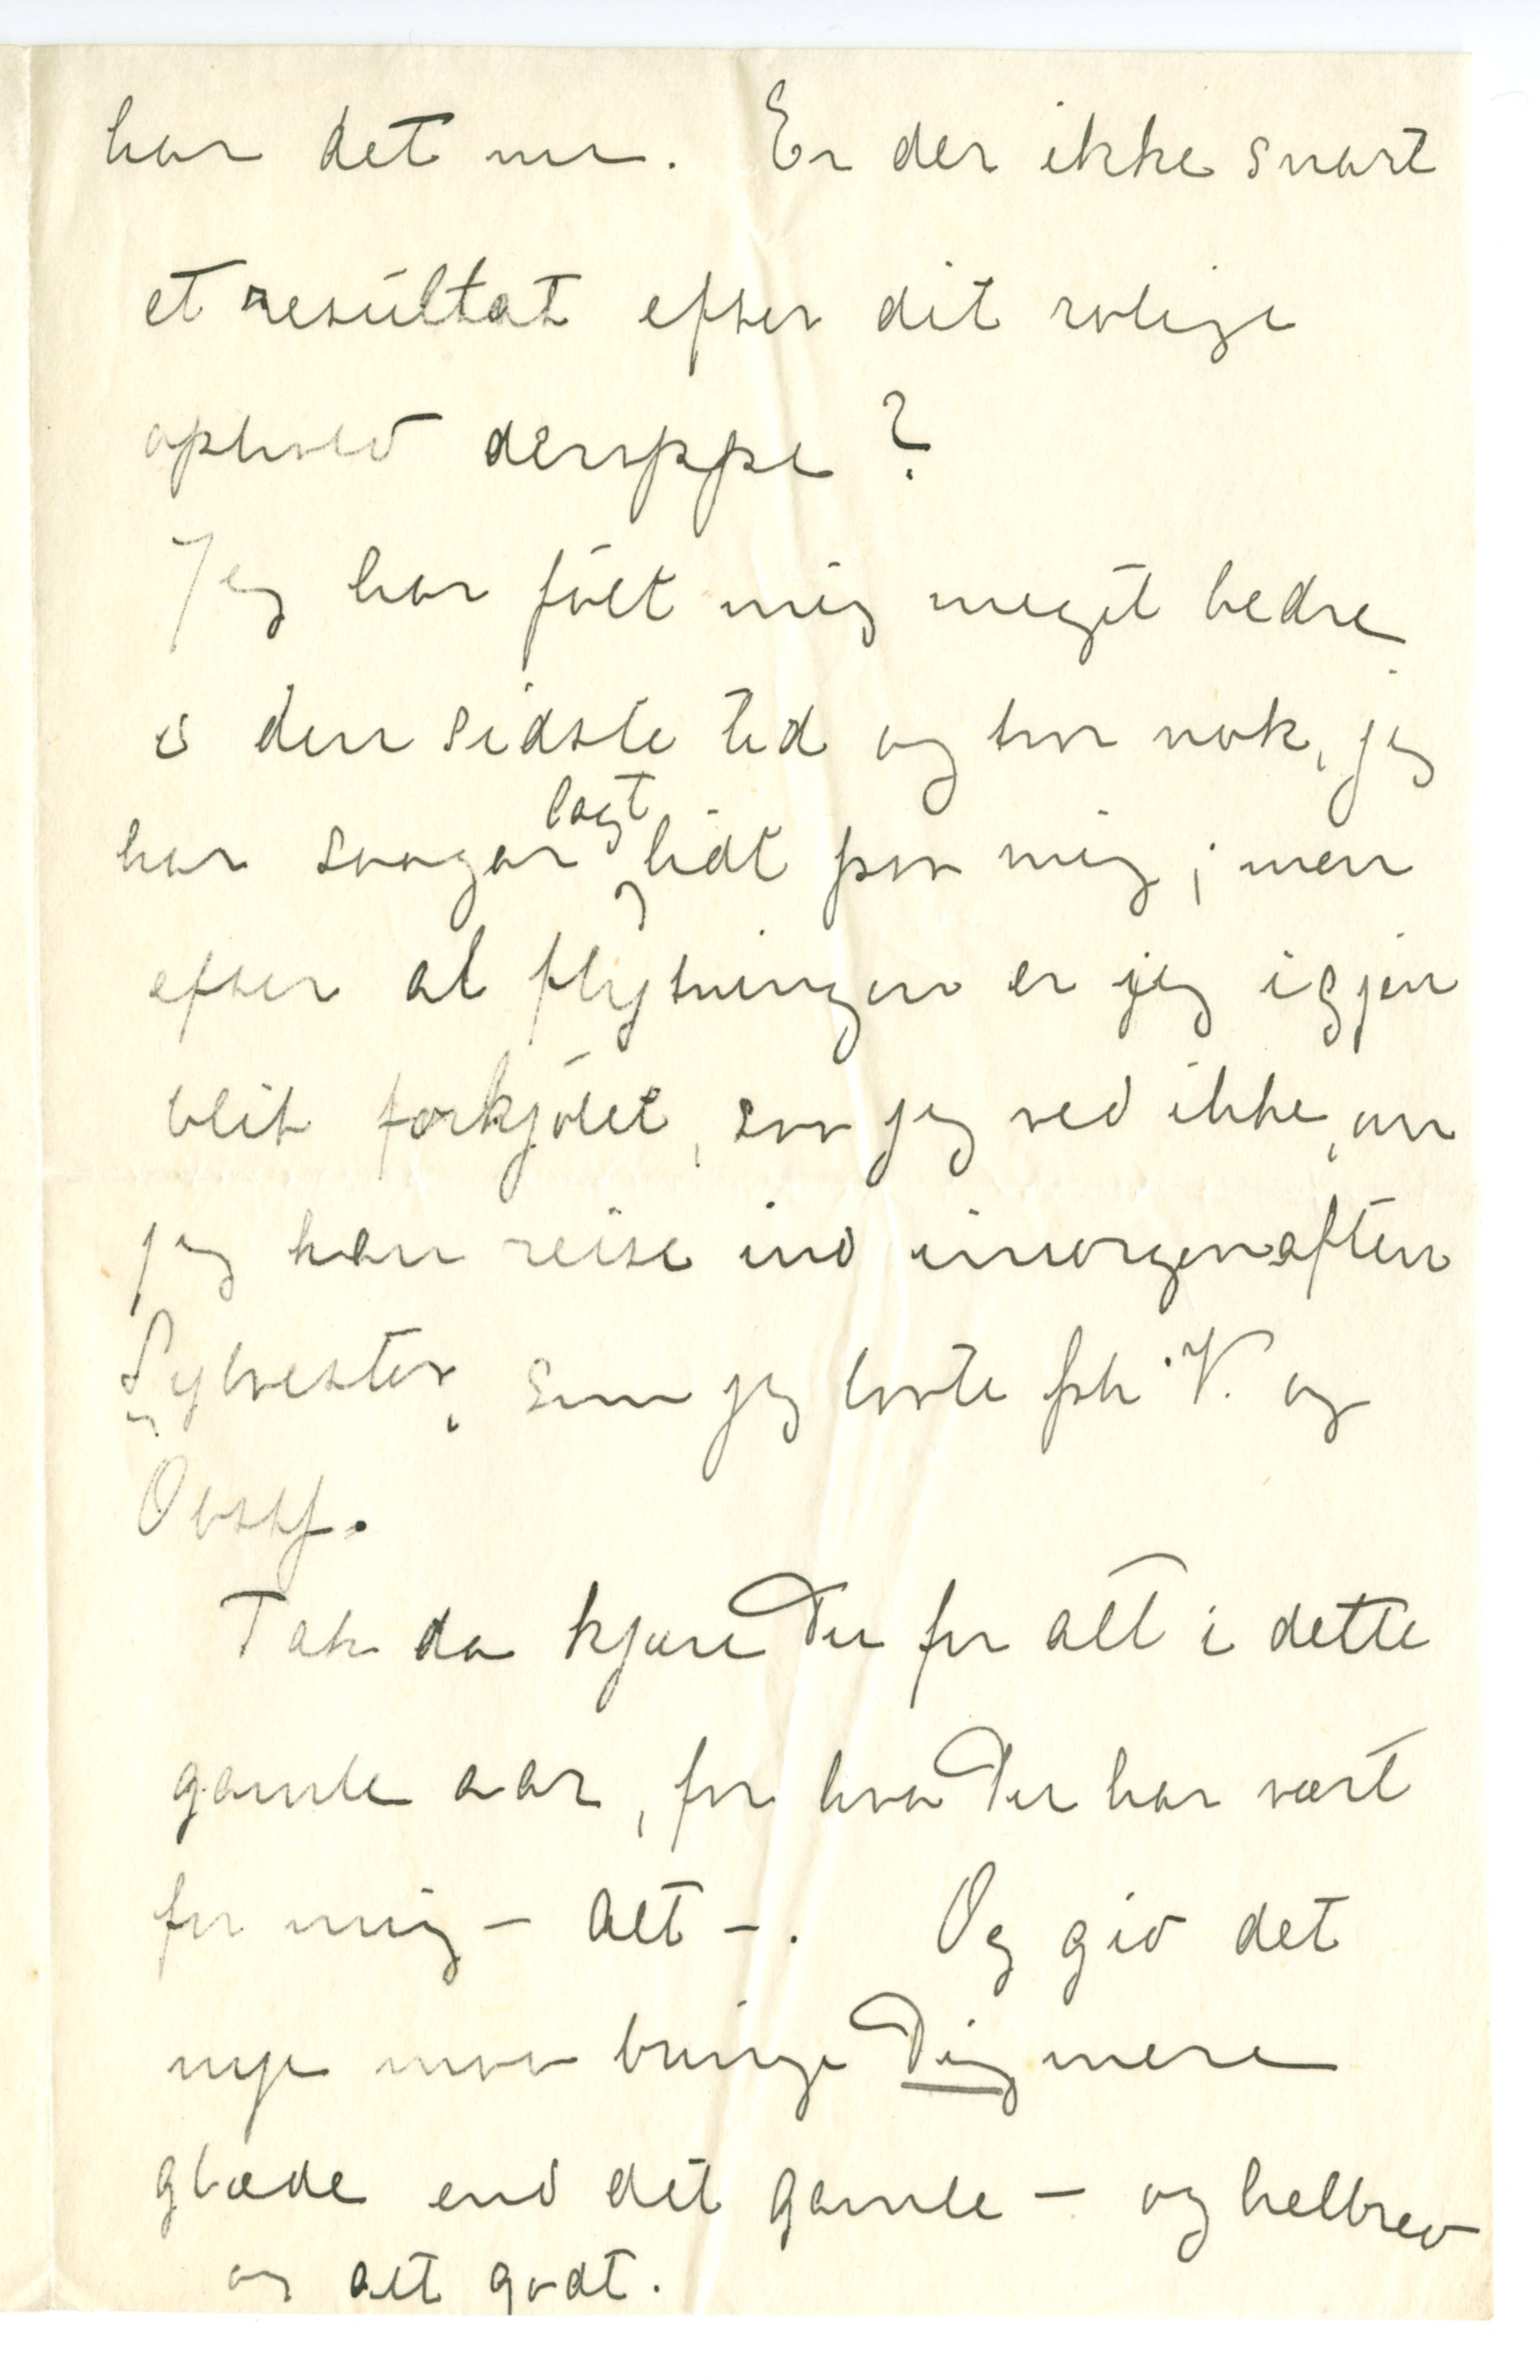 har det nu. Er der ikke snart
et resultat efter dit rolige
ophold deroppe?
Jeg har fölt mig meget bedre
i den sidste tid og tror nok, jeg
har saagar lagt lidt paa mig; men
efter al flytningen er jeg igjen
blit forkjölet, saa jeg ved ikke, om
jeg kan reise ind imorgenaften
Sylvester, som jeg lovte frk V. og
Obstf.
Tak da kjære Du for alt i dette
gamle aar, for hva Du har vært
for mig – alt –. Og gid det
nye maa bringe Dig mere
glæde end det gamle – og helbred
og alt godt.